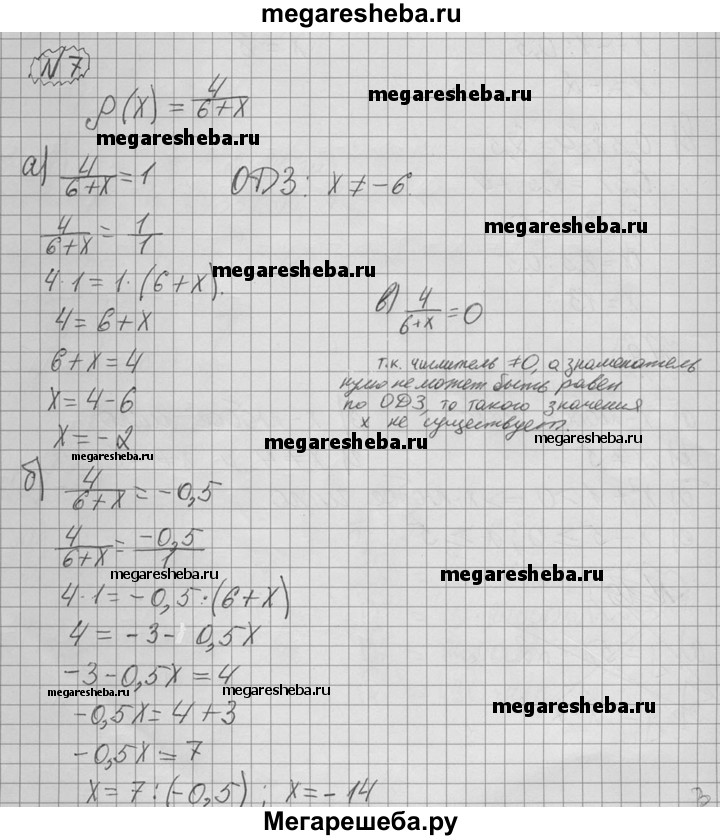 megaresheba.ru
№ 7
megaresheba.ru
р(х) = 4/(6+х)
megaresheba.ru
а) 4/(6+х) = 1 ОДЗ: х ≠ -6.
megaresheba.ru
4/(6+х) = 1/1
megaresheba.ru
4·1 = 1·(6+х).
в) 4/(6+х) = 0
4 = 6+х
6+х = 4
т.к. числитель ≠0, а знаменатель
нулю не может быть равен
по ОДЗ, то такого значения
х не существует.
х = 4-6
х = -2
megaresheba.ru
megaresheba.ru
megaresheba.ru
б) 4/(6+х) = -0,5
4/(6+х) = -0,5/1
megaresheba.ru
megaresheba.ru
4·1 = -0,5·(6+х)
4 = -3- 0,5х
-3-0,5х = 4
megaresheba.ru
megaresheba.ru
-0,5х = 4+3
megaresheba.ru
-0,5х = 7
х = 7:(-0,5); х = -14
Мегарешеба.ру